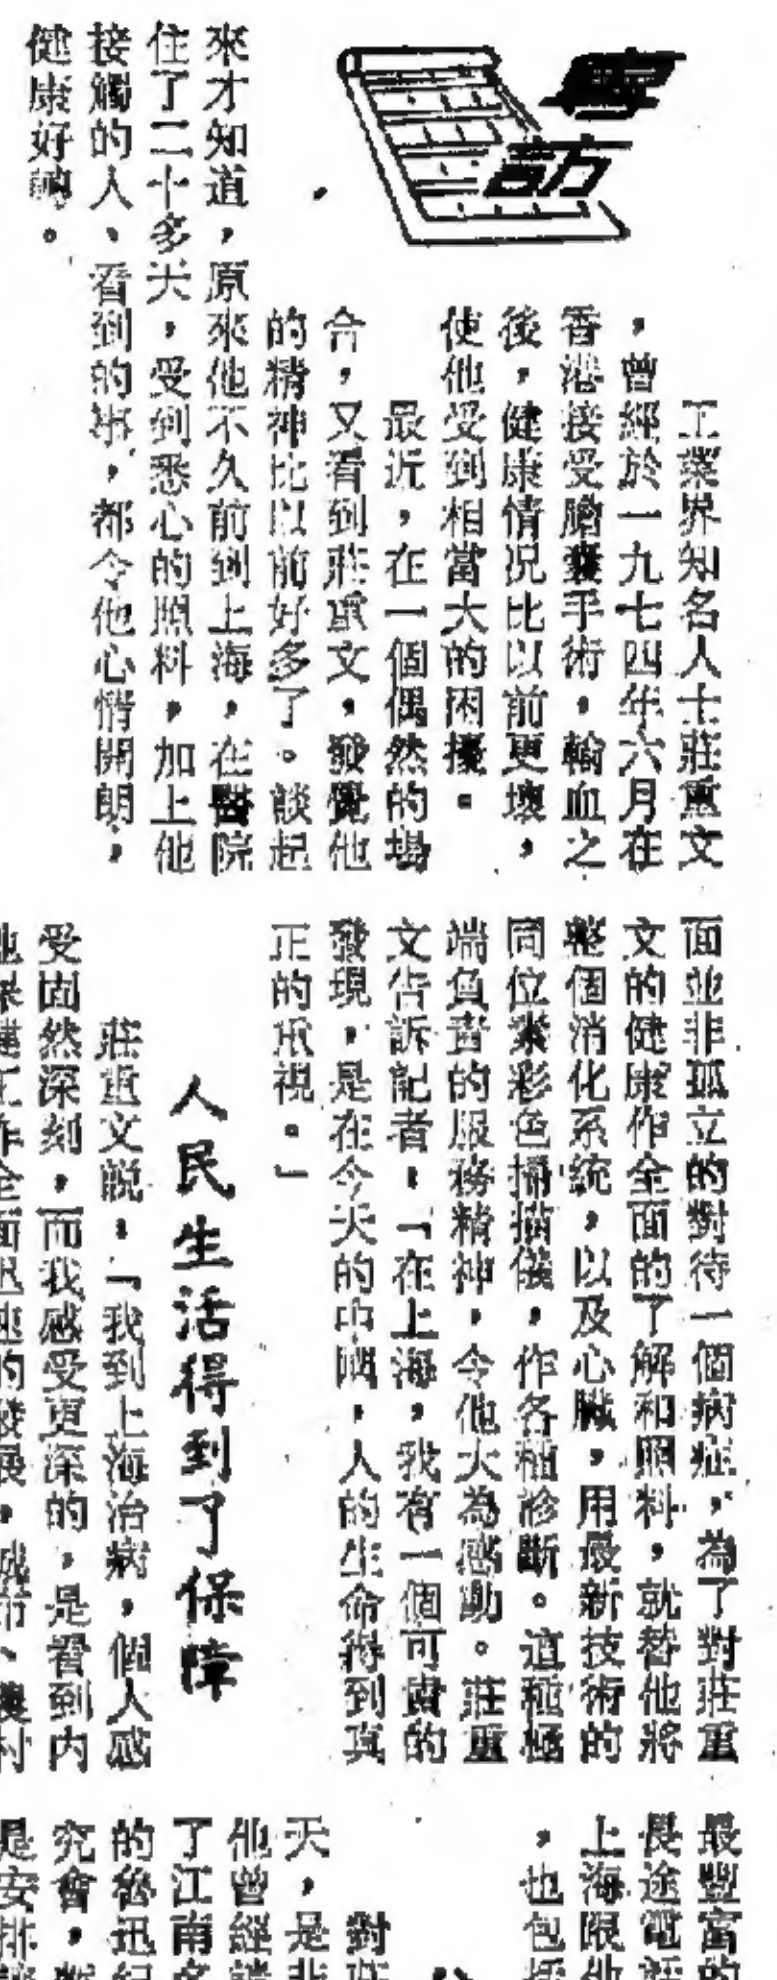 專訪
工業界知名人士莊重文
，曾經於一九七四年六月在
香港接受膽囊手術，輸血之
後，健康情况比以前更壞，
使他受到相當大的困擾。
最近，在一個偶然的場
合，又看到莊重文，發覺他
的精神比以前好多了。談起
來才知道，原來他不久前到上海，在醫院
住了二十多天，受到悉心的照料，加上他
接觸的人、看到的事，都令他心情開朗，
健康好轉。
面並非孤立的對待一個病症，為了對莊重
文的健康作全面的了解和照料，就替他將
整個消化系統，以及心臟，用最新技術的
同位素彩色掃描儀，作各種診斷。這種極
端負責的服務精神，令他大為感動。莊重
文告訴記者：「在上海，我有一個可貴的
發現，是在今天的中國，人的生命得到真
正的重視。」
人民生活得到了保障
莊重文說：「我到上海治病，個人感
受固然深刻，而我感受更深的，是看到內
地保健工作全面迅速的發展，城市、農村
最豐富的
長途電話
上海限他
，也包括
對莊
天，是非
他曾經
了江南
的魯迅紀
究會，
是安排